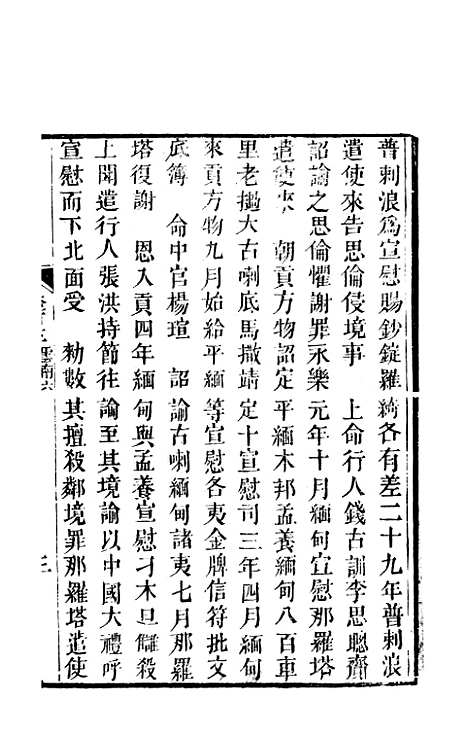 普剌浪爲宣慰賜鈔錠羅綺各有差二十九年普剌浪
遣使來告思倫侵境事　上命行人錢古訓李思聰齎
詔諭之思倫懼謝罪永樂元年十月緬甸宣慰那羅塔
遣使來　朝貢方物詔定平緬木邦孟養緬甸八百車
里老撾大古喇底馬撒靖定十宣慰司三年四月緬甸
來貢方物九月始給平緬等宣慰各夷金牌信符批文
底簿　命中官楊瑄　詔諭古喇緬甸諸夷七月那羅
塔復謝　恩入貢四年緬甸與孟養宣慰刁木旦讎殺
上聞遣行人張洪持節往諭至其境諭以中國大禮呼
宣慰而下北面受　勅數其擅殺鄰境罪那羅塔遣使
雲南六
三